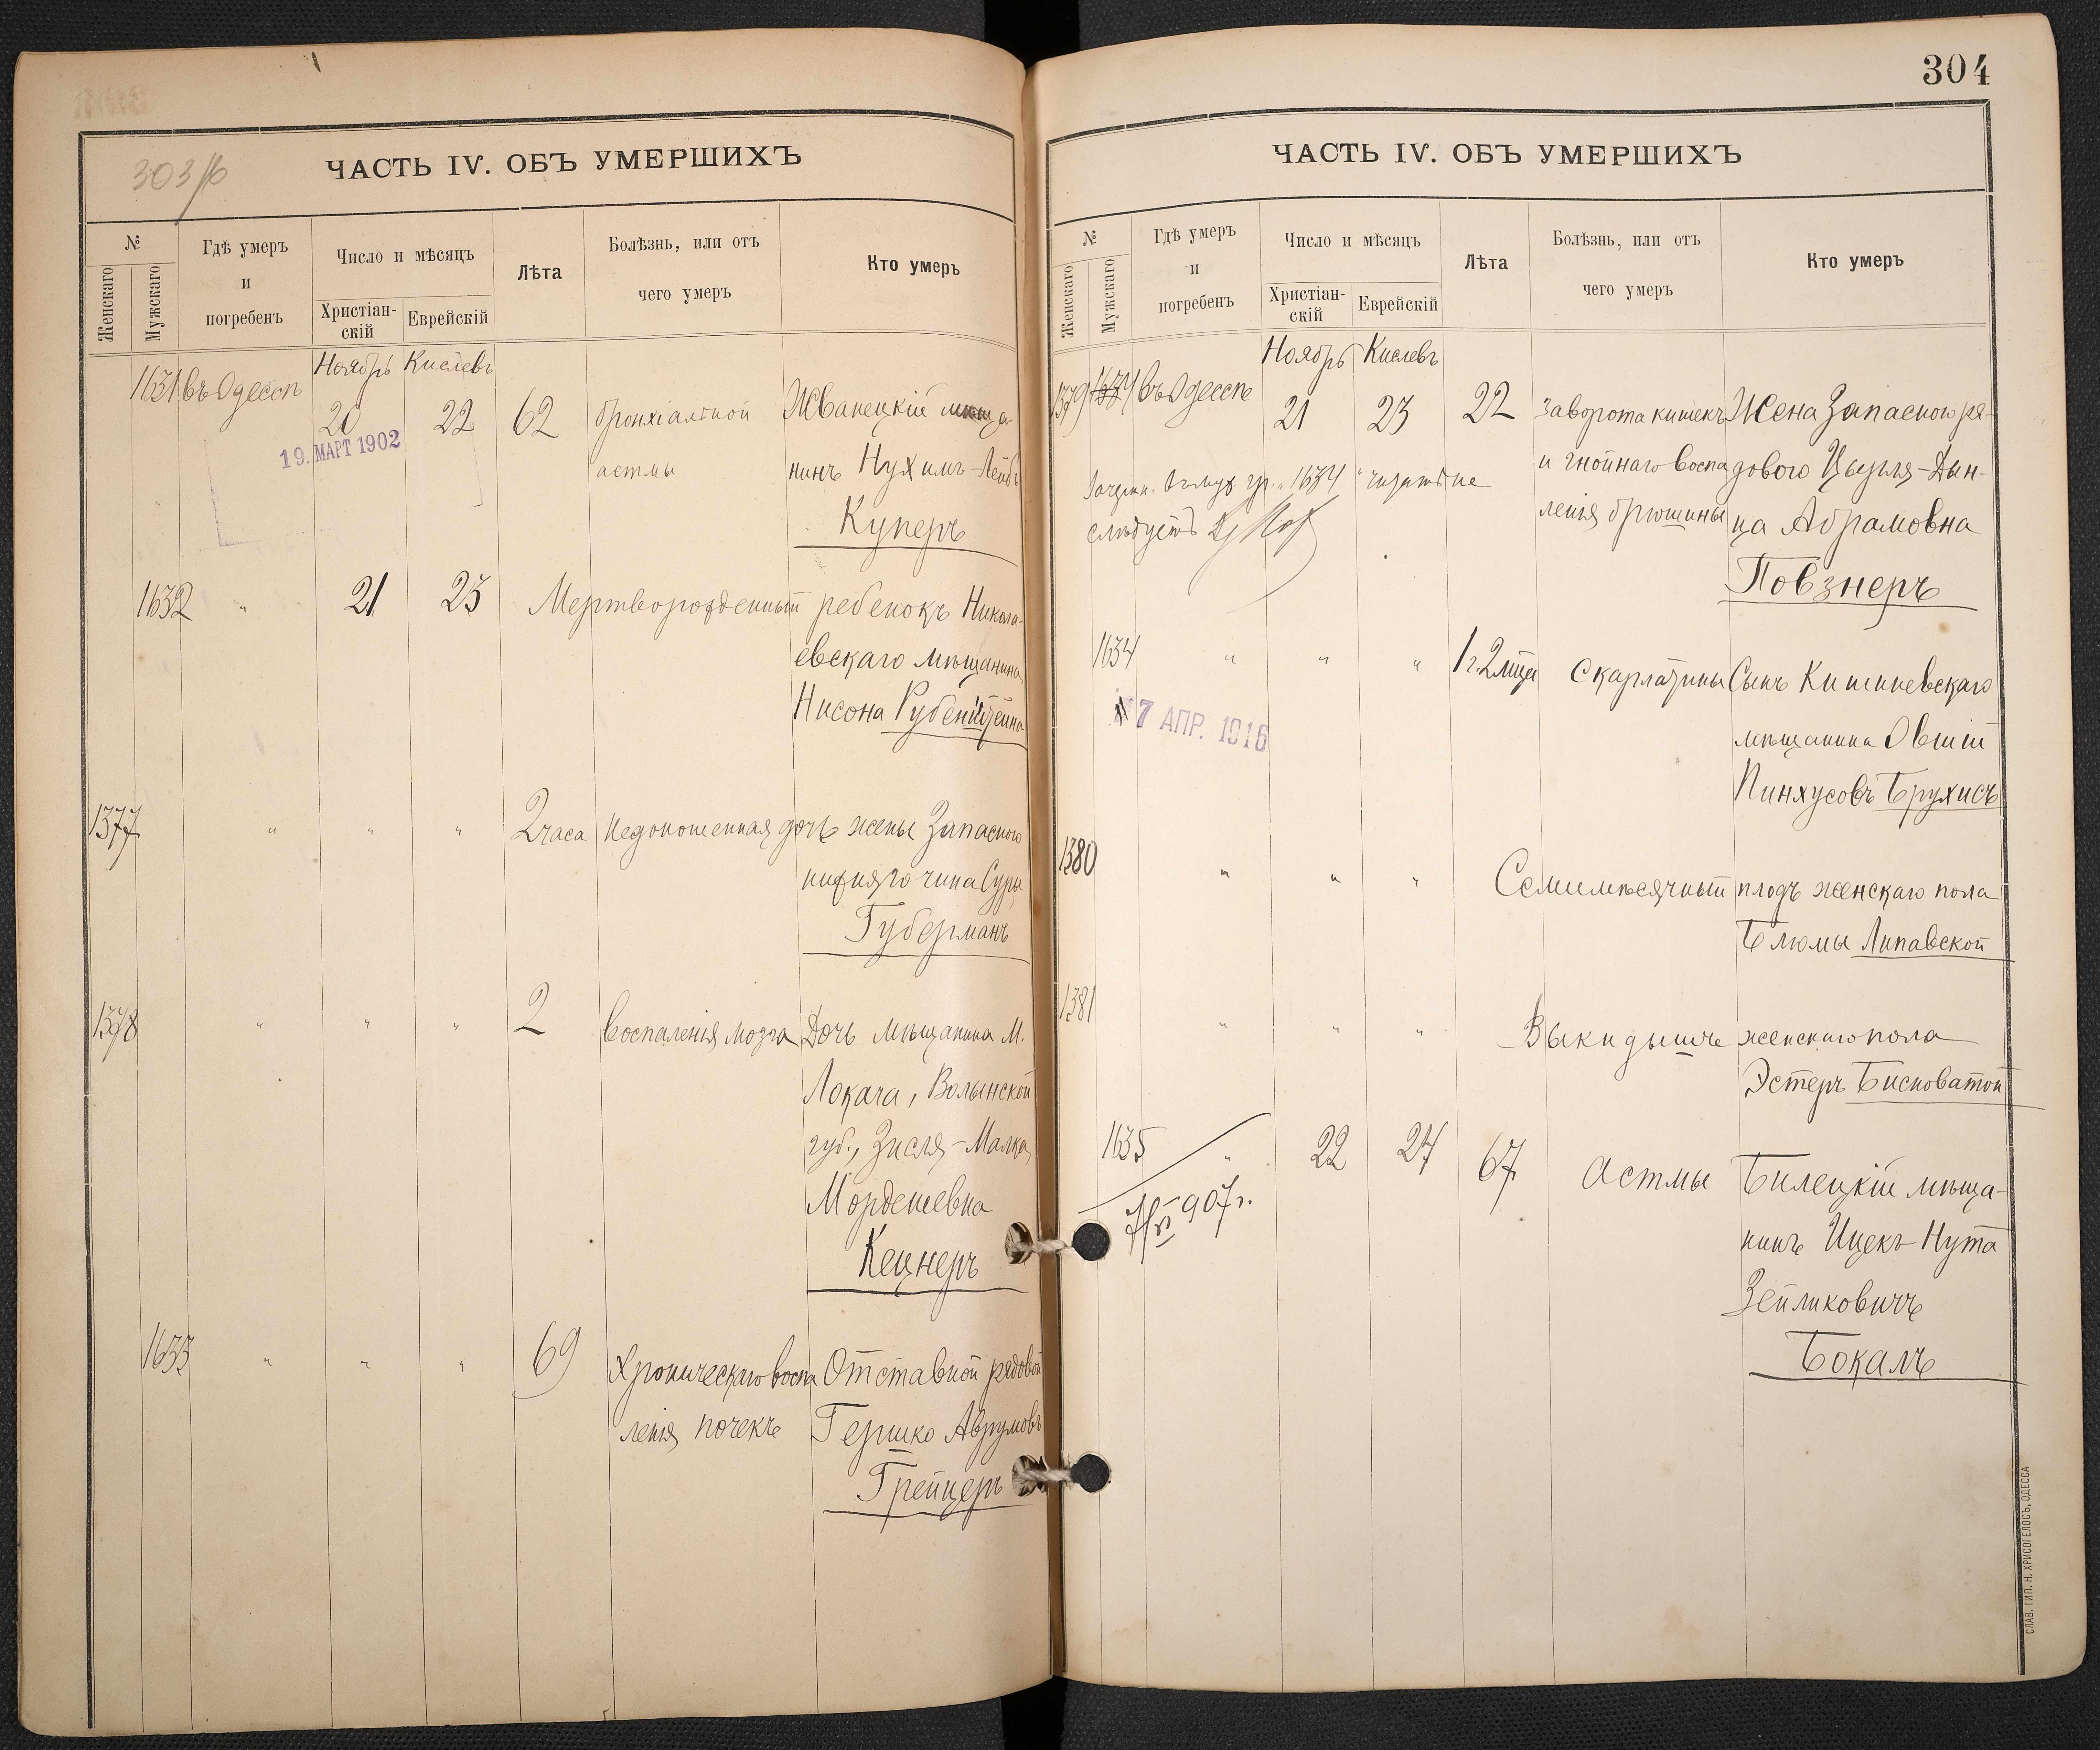 303/б
ЧАСТЬ IV. ОБЪ УМЕРШИХЪ
№
Женскаго
Мужскаго
Гдѣ умеръ
и
погребенъ
Число и мѣсяцъ
Христіан-
скій
Еврейскій
Лѣта
Болѣзнь, или отъ
чего умеръ
Кто умеръ
Ноябрь Кислевъ
1631 въ Одессѣ 20 22 62 бронхіальной Жванецкій мѣща-
19. МАРТ 1902
астмы нинъ Нухимъ-Лейбъ
Куперъ
1632 " 21 23 Мертворожденный ребенокъ Никола-
евскаго мѣщанина
Нисона Рубенштейна
1377 " " " 2 часа недоношенная дочь жены Запасного
нижняго чина Сура
Губерманъ
1378 " " " 2 воспаленія мозга Дочь мѣщанина м.
Локача, Волынской
губ., Зисля-Малка
Мордкевна
Кецнеръ
1633 " " " 69 Хроническаго воспа Отставной рядовой
ленія почекъ Гершко Аврумовъ
Грейцеръ
304
ЧАСТЬ IV. ОБЪ УМЕРШИХЪ
№
Женскаго
Мужскаго
Гдѣ умеръ
и
погребенъ
Число и мѣсяцъ
Христіан-
скій
Еврейскій
Лѣта
Болѣзнь, или отъ
чего умеръ
Кто умеръ
Ноябрь Кислевъ
1379 1634 въ Одессѣ 21 23 22 заворота кишекъ Жена Запасного ря-
и гнойнаго воспа дового Цызля-Дын-
ленія брюшины ца Абрамовна
Повзнеръ
"1634" читать не
слѣдуетъ
1634 " " " 1 г. 2 мѣц Скарлатины Сынъ Кишиневскаго
7 АПР. 1916
мѣщанина Овшій
Пинхусовъ Брухисъ
1380 " " " Семимѣсячный плодъ женскаго пола
Блюмы Липавской
1381 " " " Выкидышъ женскаго пола
Эстеръ Бисноватой
1635 " 22 24 67 Астмы Билецкій мѣща-
907 г.
нинъ Ицекъ-Нута
Зейликовичъ
Бокалъ
СЛАВ. ТИП. Н. ХРИСОГЕЛОСЪ, ОДЕССА